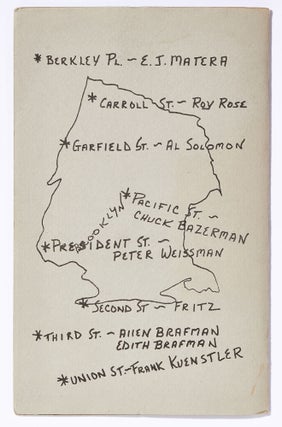 *BERKLEY PL. ~ E. J. MATERA
*CARROLL ST. ~ ROY ROSE
*GARFIELD ST. ~ AL SOLOMON
BROOKLYN
*PACIFIC ST. ~
CHUCK BAZERMAN
*PRESIDENT ST. ~
PETER WEISSMAN
*SECOND ST ~ FRITZ
*THIRD ST. ~ ALLEN BRAFMAN
EDITH BRAFMAN
*UNION ST.-FRANK KUENSTLER